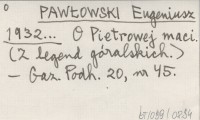 0 PAWŁOWSKI Eugeniusz
1932... O Pietrowej maci.
(Z legend góralskich.)
– Gaz. Podh. 20, nr 45.